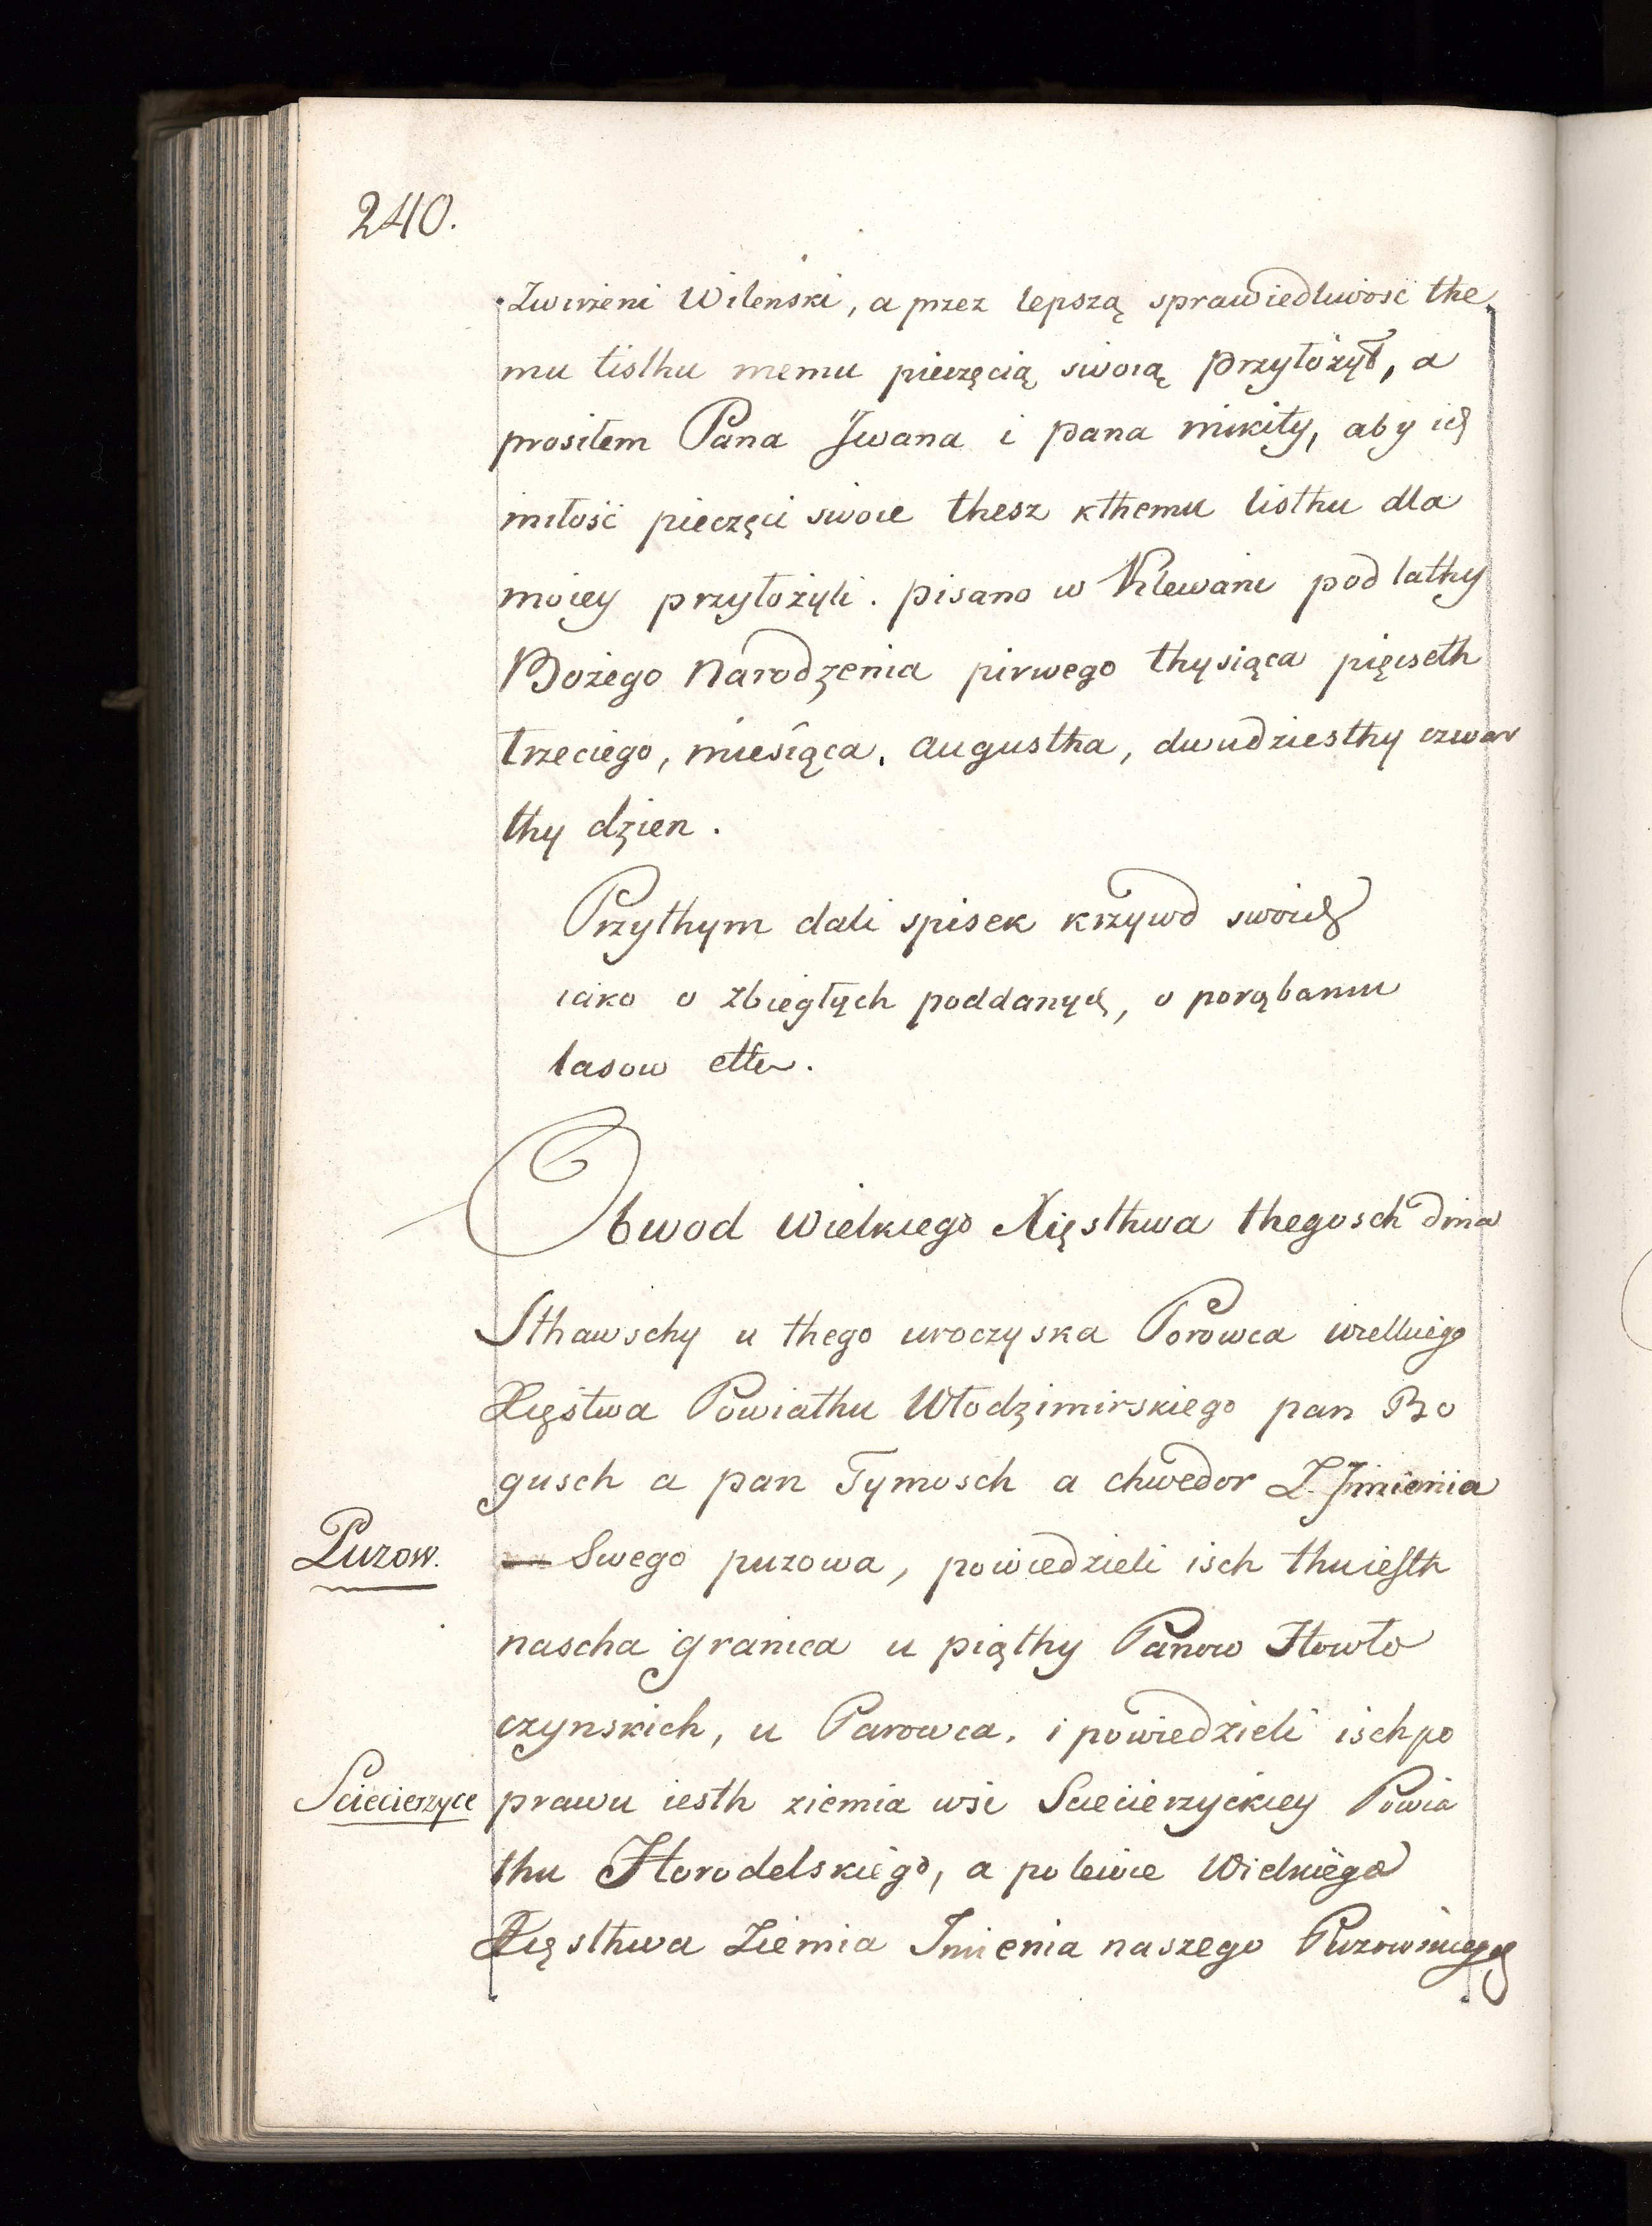 240.
Zwirzeni Wilenski, a przez lepszą sprawiedliwosć the
mu listhu memu pieczęcią swoią przyłożył, a
prosiłem Pana Jwana i pana mikity, aby ich
miłosć pieczęci swoie thesz kthemu listhu dla
moiey przyłożyli. pisano w Klewaniu pod lathy
Bożego Narodzenia pirwego thysiąca pięcseth
trzeciego, miesiąca, augustha, dwudziesthy czwar
thy dzien.
Przythym dali spisek krzywd swoich
iako o zbiegłych poddanych, o porąbaniu
lasow etc.
Obwod Wielkiego Xięsthwa thegosch dnia
Sthawschy u thego uroczyska Porowca wielkiego
Xięstwa Powiathu Włodzimirskiego pan Bo
gusch a pan Tymosch a chwedor Z Jmienia
Puzow.
Swego puzowa, powiedzieli isch thu iesth
nascha granica u piąthy Panow Howło
czynskich, u Parowca. i powiedzieli isch po
Sciecierzyce
prawu iesth ziemia wsi Sciecierzyckiey Powia
thu Horodelskiego, a po lewie Wielkiego
Xięsthwa Ziemia Jmienia naszego Puzowskiego